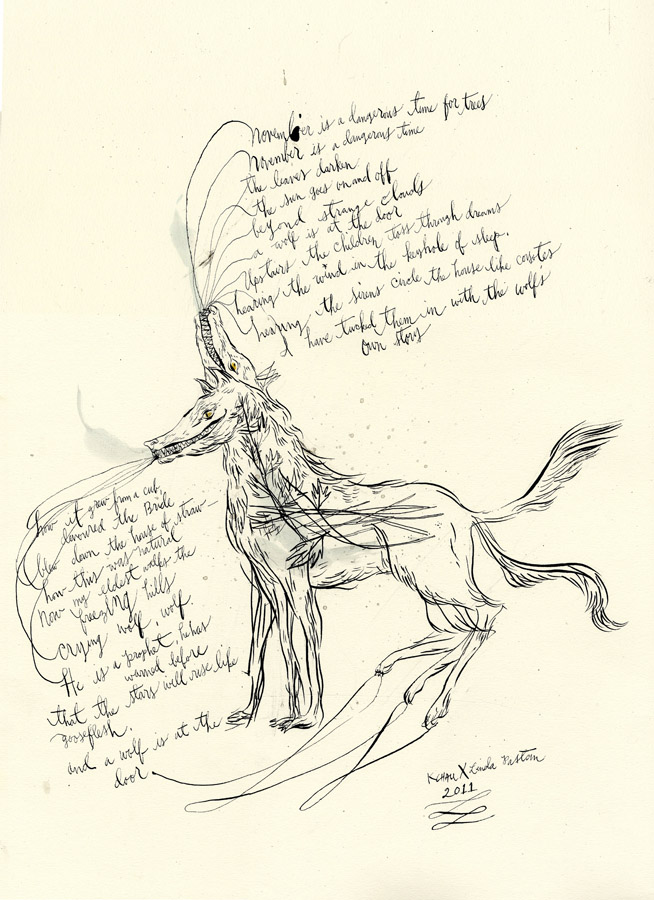 November is a dangerous time for trees
November is a dangerous time
the leaves darken
the sun goes on and off
beyond strange clouds
a wolf is at the door
Upstairs the children toss through dreams
hearing the wind in the keyhole of sleep.
hearing the sirens circle the house like coyotes
I have tucked them in with the wolf's
own story
how it grew from a cub,
devoured the Bride
blew down the house of straw
how this was natural
Now my eldest walks the
freezing hills
crying wolf, wolf
He is a prophet, he has
warned before
that the stars will rise like
gooseflesh.
and a wolf is at the
door
KCHAU X Linda Pastan
2011